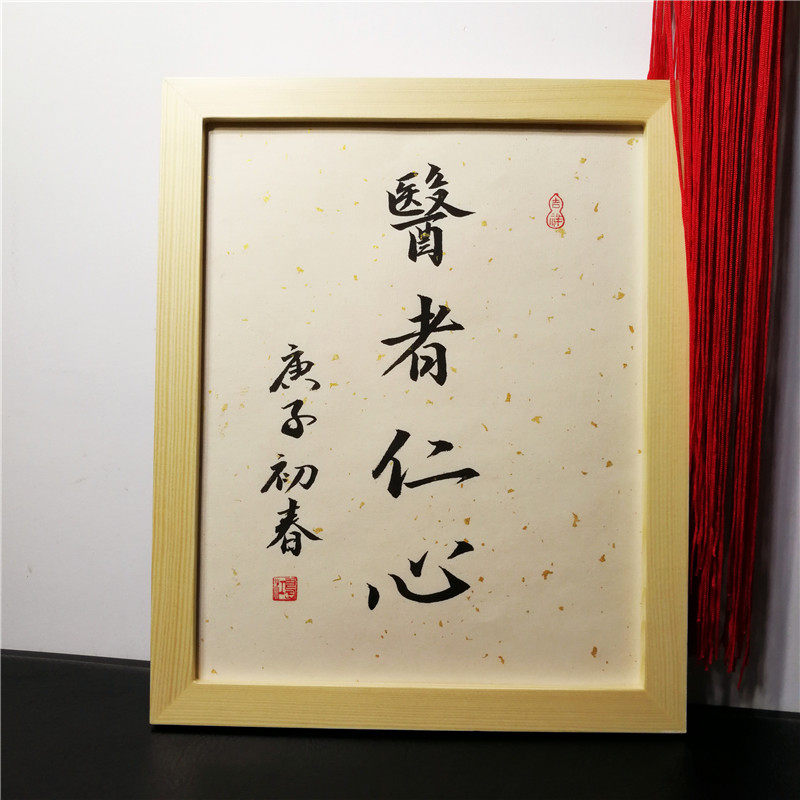 吉祥
醫者仁心
庚子初春